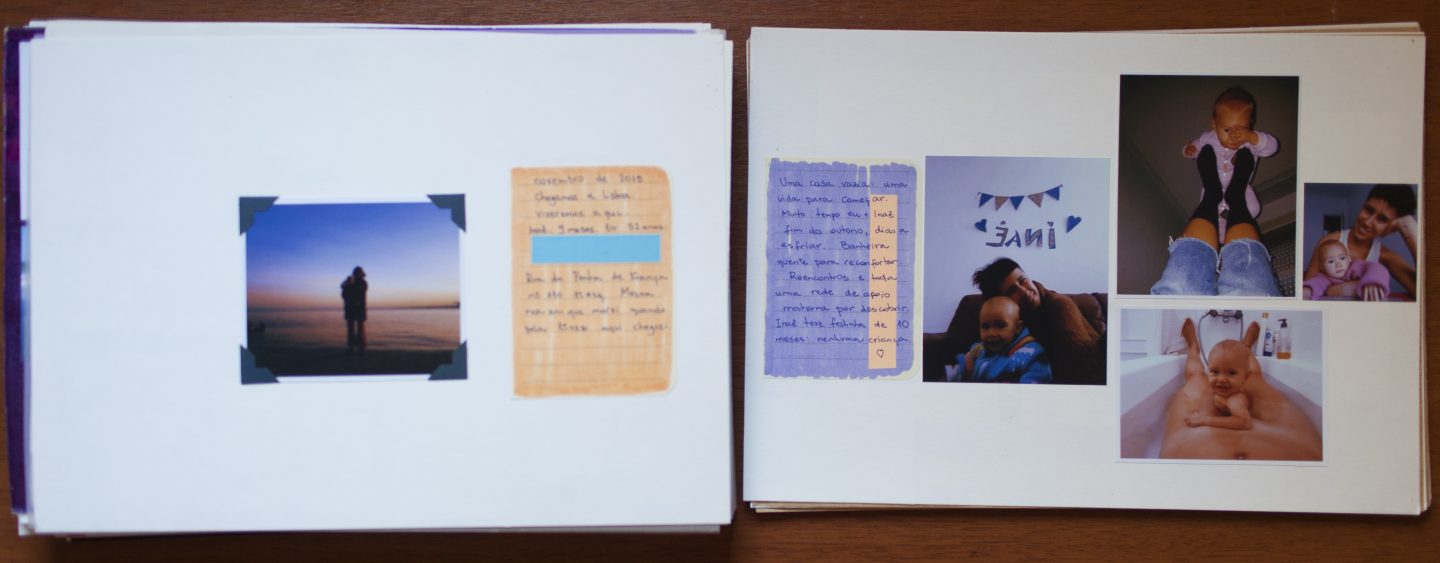 novembro de 2018
Chegamos a Lisboa.
viveremos aqui.
Inaê, 9 meses. Eu, 32 anos.
Rua da Penha de França
nº esq. Mesma
rua em que morei quando
pela vez aqui cheguei.
Uma casa vazia: uma
vida para começar.
Muito tempo eu + Inaê
fim do outono, dias a
esfriar. Banheira
quente para reconfortar.
Reencontros e toda
uma rede de apoio
materna por descobrir.
Inaê teve festinha de 10
meses: nenhuma criança.
♡
INAÊ